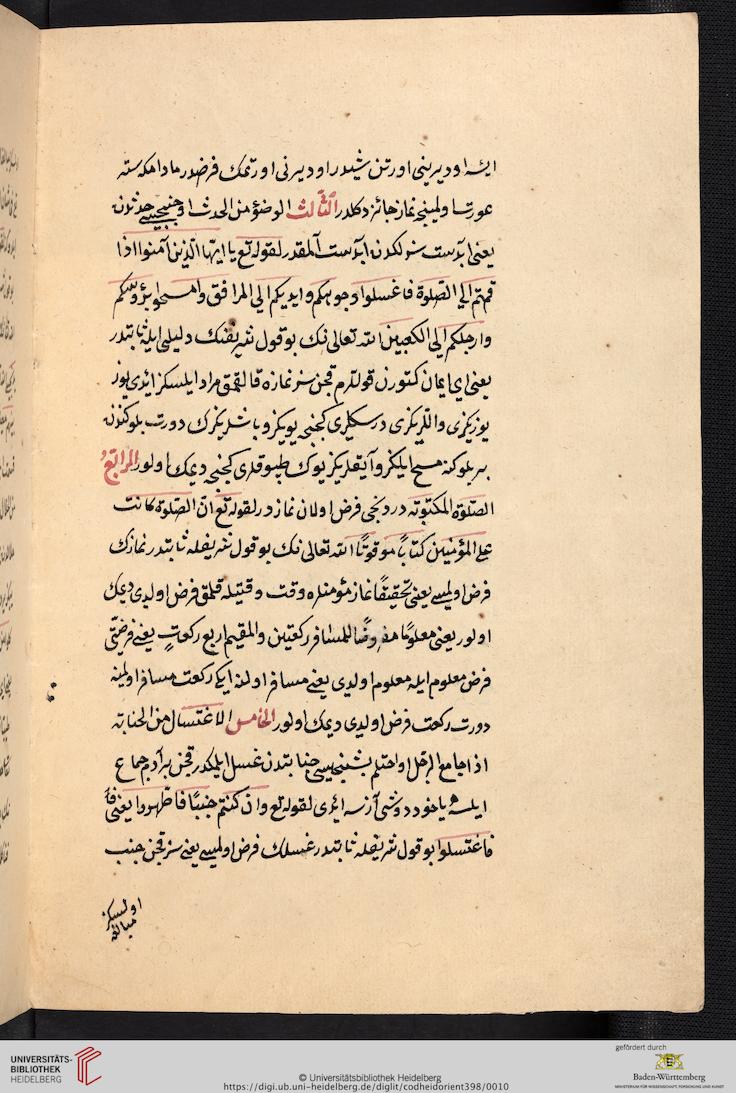 ایسه اودیرینی اورتن شیلدر اودیرنی اورتمك فرضدر مادامکه ستر
عورت اولمینجه نماز جائز دکلدر الثالث الوضؤ من الحدث اوچنجیسی حدثدن
یعنی ابدست سزلکدن ابدست آلمقدر لقوله تع یا ایها الذین آمنوا اذا
قمتم الی الصلوة فاغسلوا وجوهکم وایدیکم الی المرافق وامسحوا برؤسکم
وارجلکم الی الکعبین الله تعالی نك بو قول شریفنك دلیلی ایله ثابتدر
یعنی ای ایمان کتورن قوللرم قچن سز نمازه قالقمق مراد ایلسکز ایمدی یوز
یوزیکزی واللریکزی درسکلری کبنجه یویکز وباشلریکزك دورت بلوکندن
بر بلوکنه مسح ایلکز وآیقلریکز یوك طپوقلری کبنجه دیمك اولور الرابع
الصلوة المکتوبة دردنجی فرض اولان نمازدر لقوله تع ان الصلوة کانت
علی المؤمنین کتابا موقوتا الله تعالی نك بو قول شریفله ثابتدر نمازك
فرض اولمسی یعنی تحقیقا نماز مؤمنلره وقت وقتیله قلمق فرض اولدی دیمك
اولور یعنی معلوما مفروضا للمسافر رکعتین والمقیم اربع رکعت یعنی فرضیتی
فرض معلوم ایله معلوم اولدی یعنی مسافر اولنه ایکی رکعت مسافر اولمینه
دورت رکعت فرض اولدی دیمك اولور الخامس الاغتسال من الجنابة
اذا جامع الرجل او احتلم بشنجیسی جنابتدن غسل ایلمکدر قچن بر آدم جماع
ایلسه یاخود دوشی آزسه ایمدی لقوله تع وان کنتم جنبا فاطهروا یعنی فا
فاغتسلوا بو قول شریفله ثابتدر غسلك فرض اولمسی یعنی سز قچن جنب
اولسکز
مبالغه
UNIVERSITÄTS-
BIBLIOTHEK
HEIDELBERG
© Universitätsbibliothek Heidelberg
https://digi.ub.uni-heidelberg.de/diglit/codheidorient398/0010
gefördert durch
Baden-Württemberg
MINISTERIUM FÜR WISSENSCHAFT, FORSCHUNG UND KUNST